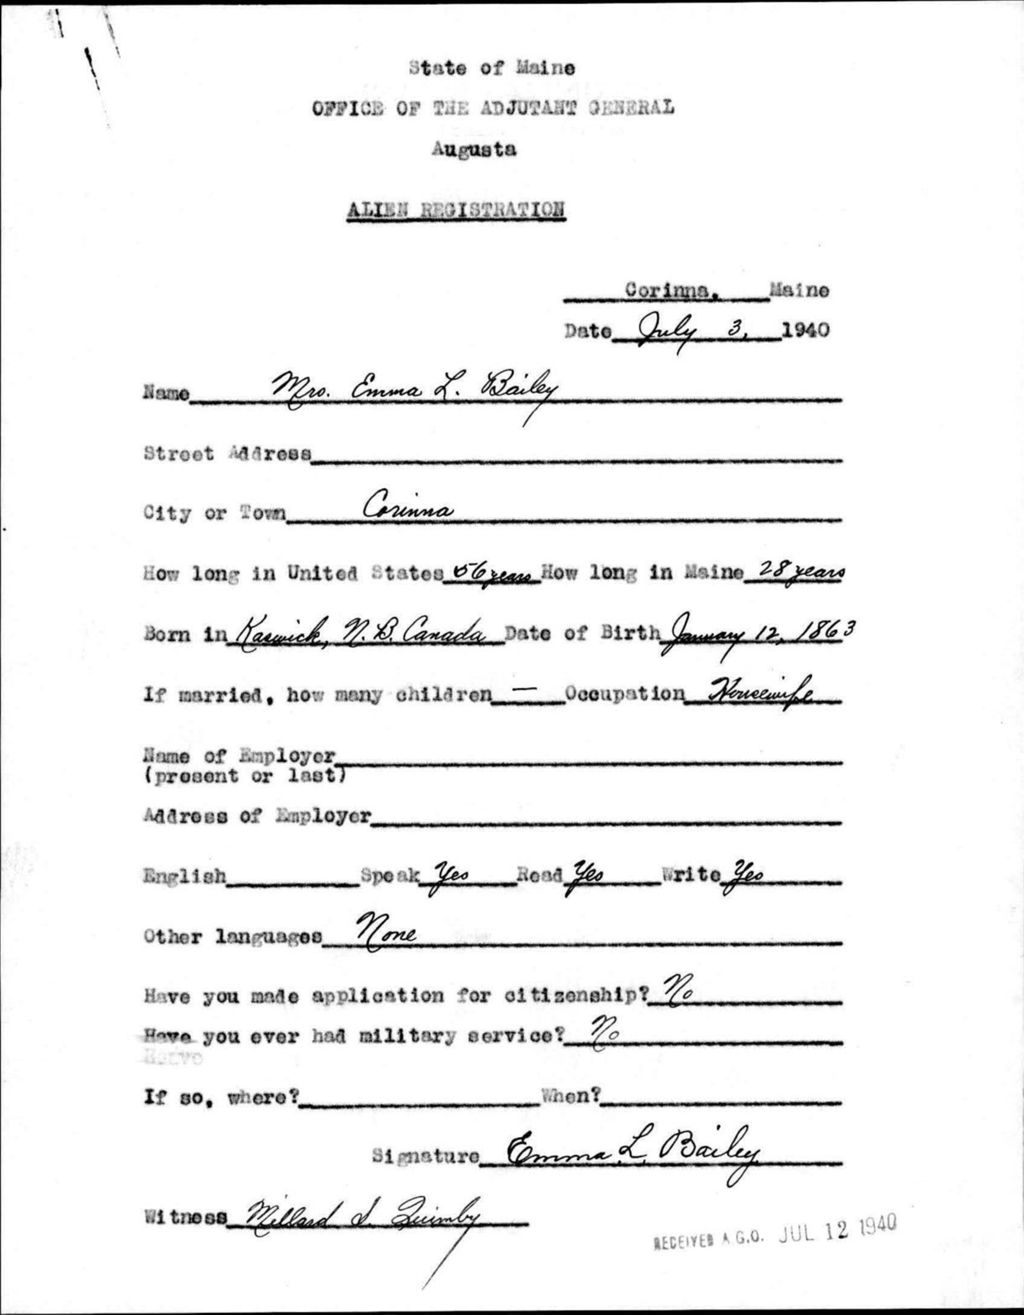 State of Maine
OFFICE OF THE ADJUTANT GENERAL
Augusta
ALIEN REGISTRATION
Corinna, Maine
Date July 3, 1940
Name Mrs. Emma L. Bailey
Street Address
City or Town Corinna
How long in United States 56 years How long in Maine 28 years
Born in Keswick, N.B. Canada Date of Birth January 12, 1863
If married, how many children — Occupation Housewife
Name of Employer
(present or last)
Address of Employer
English Speak Yes Read Yes Write Yes
Other languages None
Have you made application for citizenship? No
Have you ever had military service? No
If so, where? When?
Signature Emma L. Bailey
Witness Millard S. Quimby
RECEIVED A.G.O. JUL 12 1940